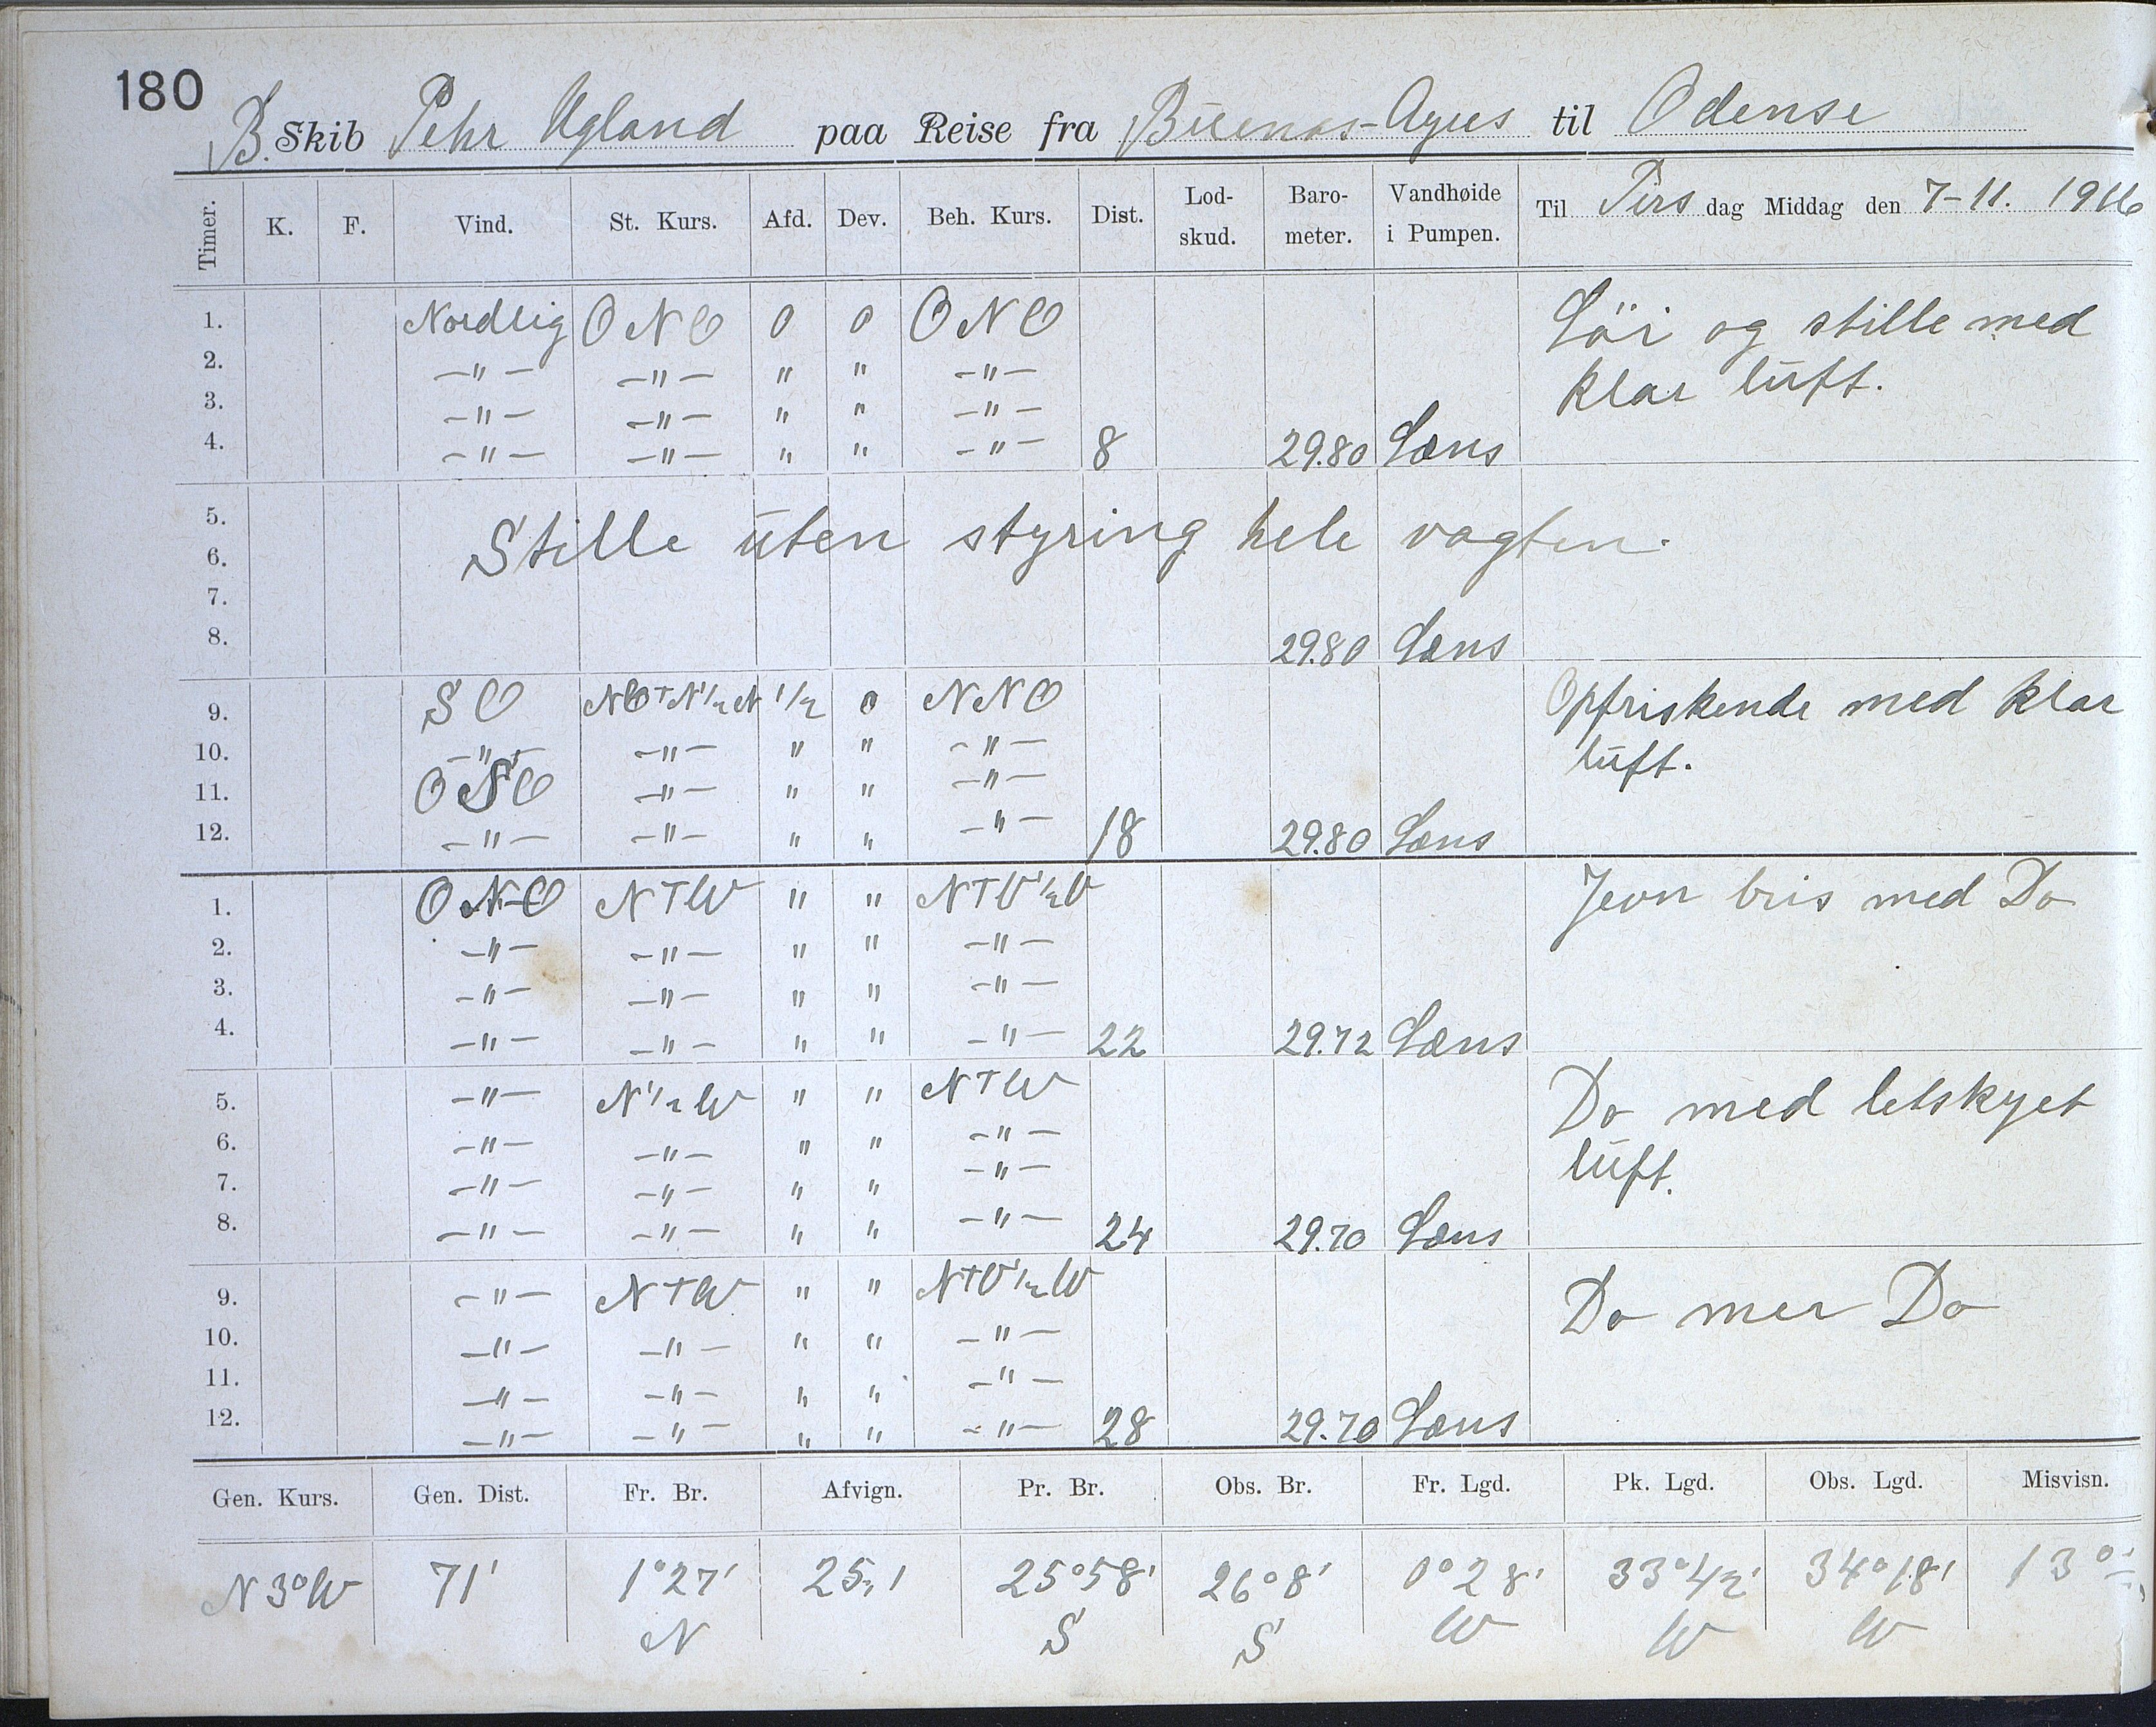 180
B. Skib Pehr Ugland paa Reise fra Buenos-Ayres til Odense
Timer. K. F. Vind. St. Kurs. Afd. Dev. Beh. Kurs. Dist. Lod-skud. Baro-meter. Vandhøide i Pumpen. Til Tirs dag Middag den 7-11. 1916
1. Nordlig ONO 0 0 ONO Löi og stille med
2. -"- -"- " " -"- klar luft.
3. -"- -"- " " -"-
4. -"- -"- " " -"- 8 29.80 Læns
5. Stille uten styring hele vagten.
6.
7.
8. 29.80 Læns
9. SO NOTN1/2N 1/2 0 NNO Opfriskende med klar
10. -"- -"- " " -"- luft.
11. OSO -"- " " -"-
12. -"- -"- " " -"- 18 29.80 Læns
1. ONO NTW " " NTV1/2V Jevn bris med Do
2. -"- -"- " " -"-
3. -"- -"- " " -"-
4. -"- -"- " " -"- 22 29.72 Læns
5. -"- N1/2W " " NTW Do med letskyet
6. -"- -"- " " -"- luft.
7. -"- -"- " " -"-
8. -"- -"- " " -"- 24 29.70 Læns
9. -"- NTW " " NTV1/2W Do mer Do
10. -"- -"- " " -"-
11. -"- -"- " " -"-
12. -"- -"- " " -"- 28 29.70 Læns
Gen. Kurs. Gen. Dist. Fr. Br. Afvign. Pr. Br. Obs. Br. Fr. Lgd. Pk. Lgd. Obs. Lgd. Misvisn.
N3°W 71' 1°27' 25,1 25°58' 26°8' 0°28' 33°42' 34°18' 13°
N S S W W W